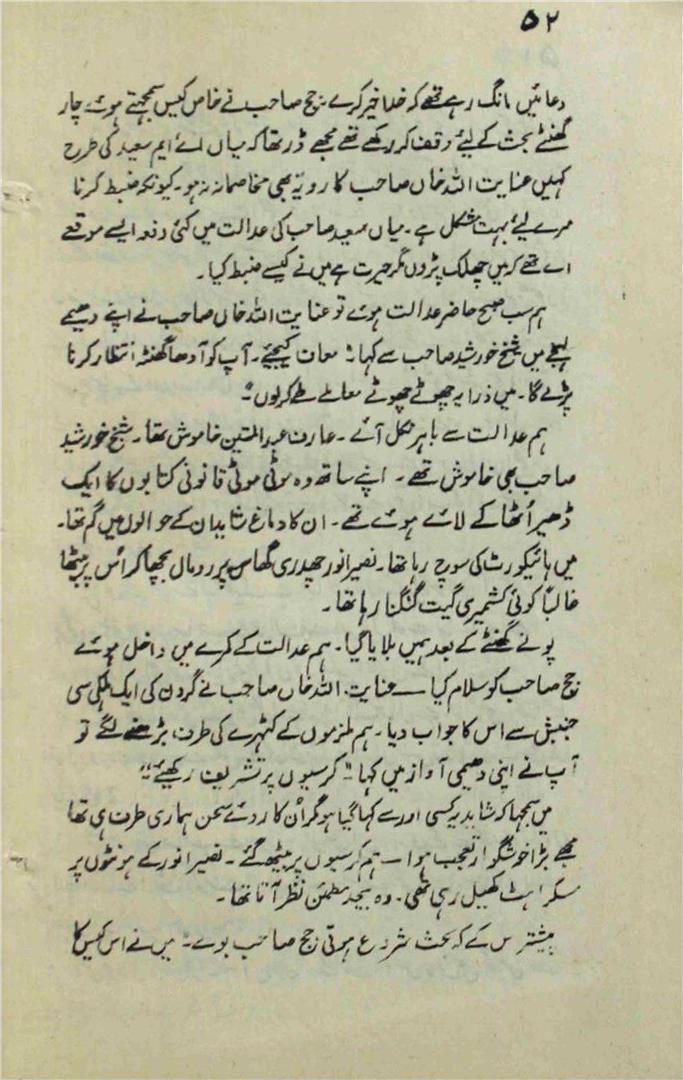 ۵۲
دعائیں مانگ رہے تھے کہ خدا خیر کرے۔ جج صاحب نے خاص کیس سمجھتے ہوئے چار
گھنٹے بحث کے لیئے وقف کر رکھے تھے مجھے ڈر تھا کہ میاں اے ایم سعید کی طرح
کہیں عنایت اللہ خاں صاحب کا رویہ بھی مخاصمانہ نہ ہو۔ کیونکہ ضبط کرنا
مرے لیئے بہت مشکل ہے۔ میاں سعید صاحب کی عدالت میں کئی دفعہ ایسے موقعے
آے تھے کہ میں چھلک پڑوں مگر حیرت ہے میں نے کیسے ضبط کیا۔
ہم سب صبح حاضر عدالت ہوئے تو عنایت اللہ خاں صاحب نے اپنے دھیمے
لہجے میں شیخ خورشید صاحب سے کہا: "معاف کیجئے۔ آپ کو آدھا گھنٹہ انتظار کرنا
پڑے گا۔ میں ذرا یہ چھوٹے چھوٹے معاملے طے کرلوں"۔
ہم عدالت سے باہر نکل آئے۔ عارف عبدالمتین خاموش تھا۔ شیخ خورشید
صاحب بھی خاموش تھے۔ اپنے ساتھ وہ موٹی موٹی قانونی کتابوں کا ایک
ڈھیر اُٹھا کے لائے ہوئے تھے۔ ان کا دماغ شاید ان کے حوالوں میں گم تھا۔
میں ہائیکورٹ کی سوچ رہا تھا۔ نصیر انور حیدری گھاس پر رومال بچھا کر اُس پر بیٹھا
غالباً کوئی کشمیری گیت گنگنا رہا تھا۔
پونے گھنٹے کے بعد ہمیں بلایا گیا۔ ہم عدالت کے کمرے میں داخل ہوئے
جج صاحب کو سلام کیا — عنایت اللہ خاں صاحب نے گردن کی ایک ہلکی سی
جنبش سے اس کا جواب دیا۔ ہم ملزموں کے کٹہرے کی طرف بڑھنے لگے تو
آپ نے اپنی دھیمی آواز میں کہا "کرسیوں پر تشریف رکھیئے"
میں سمجھا کہ شاید یہ کسی اور سے کہا گیا ہو مگر اُن کا روئے سخن ہماری طرف ہی تھا
مجھے بڑا خوشگوار تعجب ہوا — ہم کرسیوں پر بیٹھ گئے۔ نصیر انور کے ہونٹوں پر
مسکراہٹ کھیل رہی تھی۔ وہ بیحد مطمئن نظر آتا تھا۔
پیشتر س کے کہ بحث شروع ہوتی جج صاحب بولے۔ "میں نے اس کیس کا